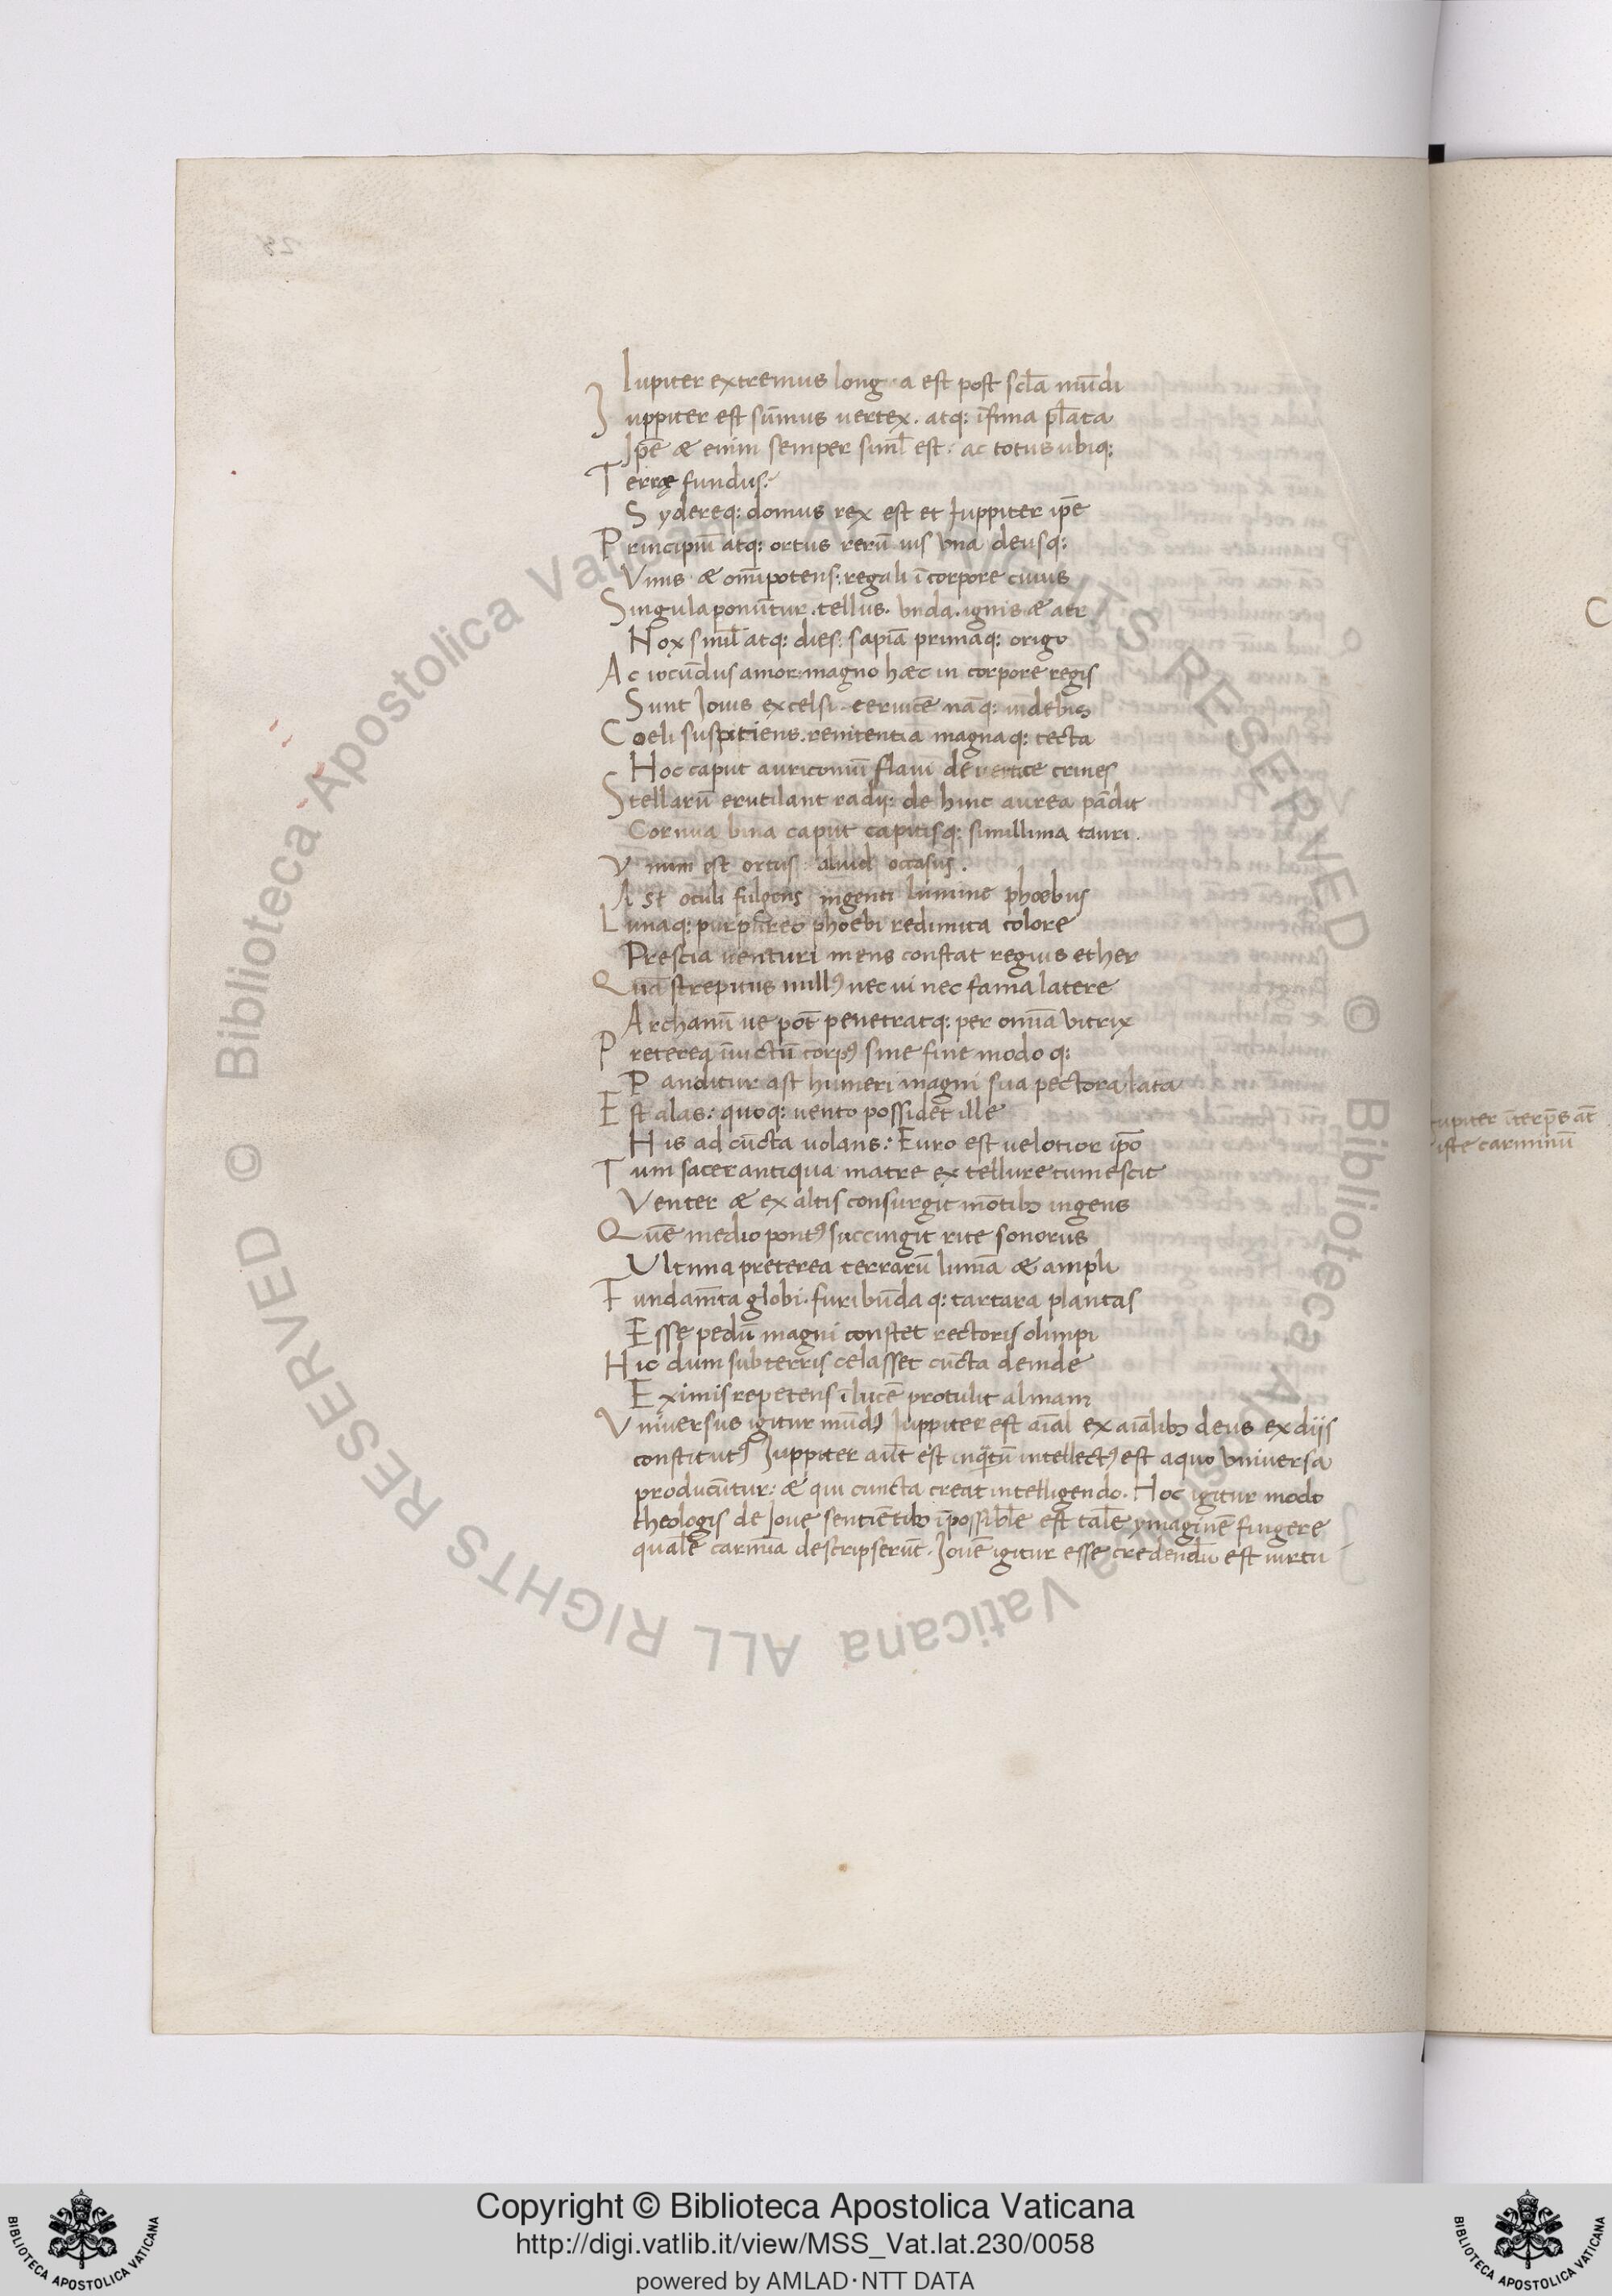 Iupiter extremus long a est post scl̄a mūdi
Iuppiter est sūmus uertex. atq: īfima pl̄ata
Ip̄e & enim semper siml̄ est. ac totus ubiq:
Terrę fundus:
Sydereq: domus rex est et Iuppiter ip̄e
Principiū atq: ortus rerū uis vna deusq:
Vnus & om̄ipotens: regali ī corpore cuius
Singula ponūtur. tellus. vnda. ignis & aer
Nox siml̄ atq: dies: sapīa primaq: origo
Ac iocūdus amor: magno hæc in corpore regis
Sunt Iouis excelsi. ceruicē nāq: uidebis
Coeli suspitiens. renitentia magnaq: tecta
Hoc caput auricomū flaui de uertice crines
Stellarū erutilant radij: de hinc aurea pādit
Cornua bina caput capitisq: simillima tauri.
Vnum est ortus. aliud occasus.
Ast oculi fulgens ingenti lumine phoebus
Lunaq: purpureo phoebi redimita colore
Prescia uenturi mens constat regius ether
Quā strepitus null9 nec ui nec fama latere
Archanū ue pot̄ penetratq: per omīa uitrix
Pretereq īuictū corp9 sine fine modo q:
Panditur ast humeri magni sua pectora lata
Est alas: quoq: uento possidet ille
His ad cūcta uolans: Euro est uelotior ip̄o
Tum sacer antiqua matre ex tellure tumescit
Venter & ex altis consurgit mōtibꝫ ingens
Quē medio pont9 succingit rite sonorus
Vltima preterea terrarū limīa & ampli
Fundam̄ta globi. furibūda q: tartara plantas
Esse pedū magni constet rectoris olimpi
Hic dum sub terris celasset cūcta deinde
Eximis repetens ī lucē protulit almam
Vniuersus igitur mūd9 Iuppiter est aīal ex aīalibꝫ deus ex diis
constitut9 Iuppiter aūt est inq̄tū intellect9 est a quo vniuersa
producūtur: & qui cuncta creat intelligendo. Hoc igitur modo
theologis de Ioue sentiētibꝫ īpossibl̄e est tal̄e ymaginē fingere
qual̄e carmīa descripserūt. Iouē igitur esse credendū est uirtu
iste carminū
C
Copyright © Biblioteca Apostolica Vaticana
http://digi.vatlib.it/view/MSS_Vat.lat.230/0058
powered by AMLAD·NTT DATA
BIBLIOTECA APOSTOLICA VATICANA
BIBLIOTECA APOSTOLICA VATICANA
© Biblioteca Apostolica Vaticana ALL RIGHTS RESERVED © Biblioteca Apostolica Vaticana ALL RIGHTS RESERVED